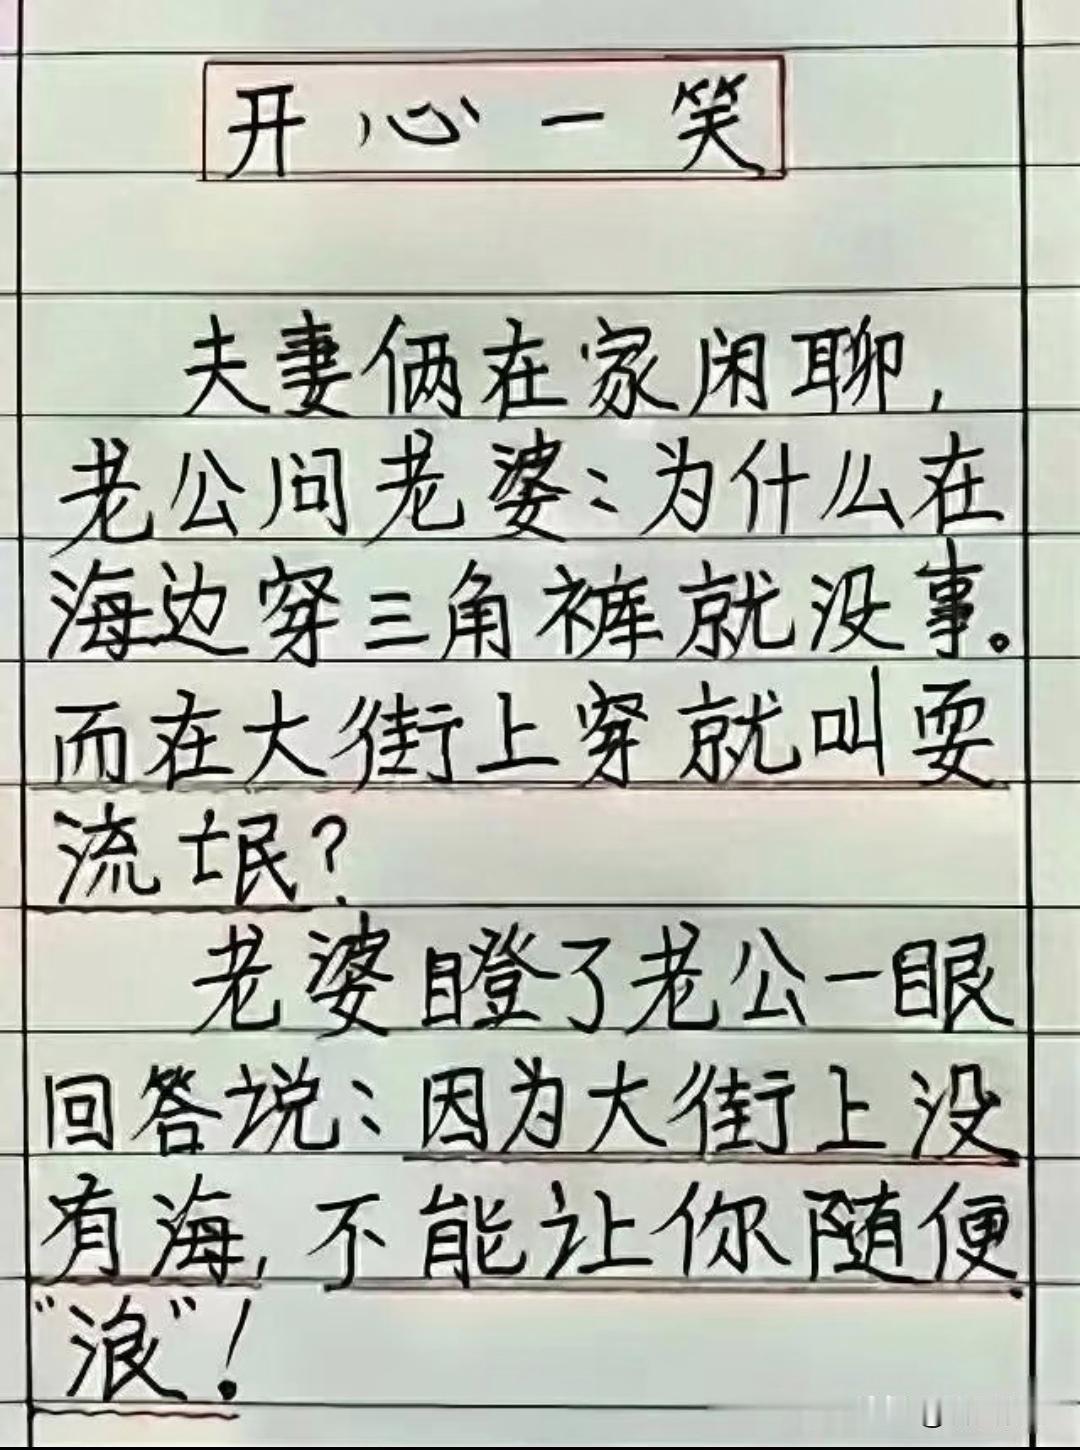 开心一笑
夫妻俩在家闲聊,
老公问老婆:为什么在
海边穿三角裤就没事。
而在大街上穿就叫耍
流氓?
老婆瞪了老公一眼
回答说:因为大街上没
有海,不能让你随便
“浪”!